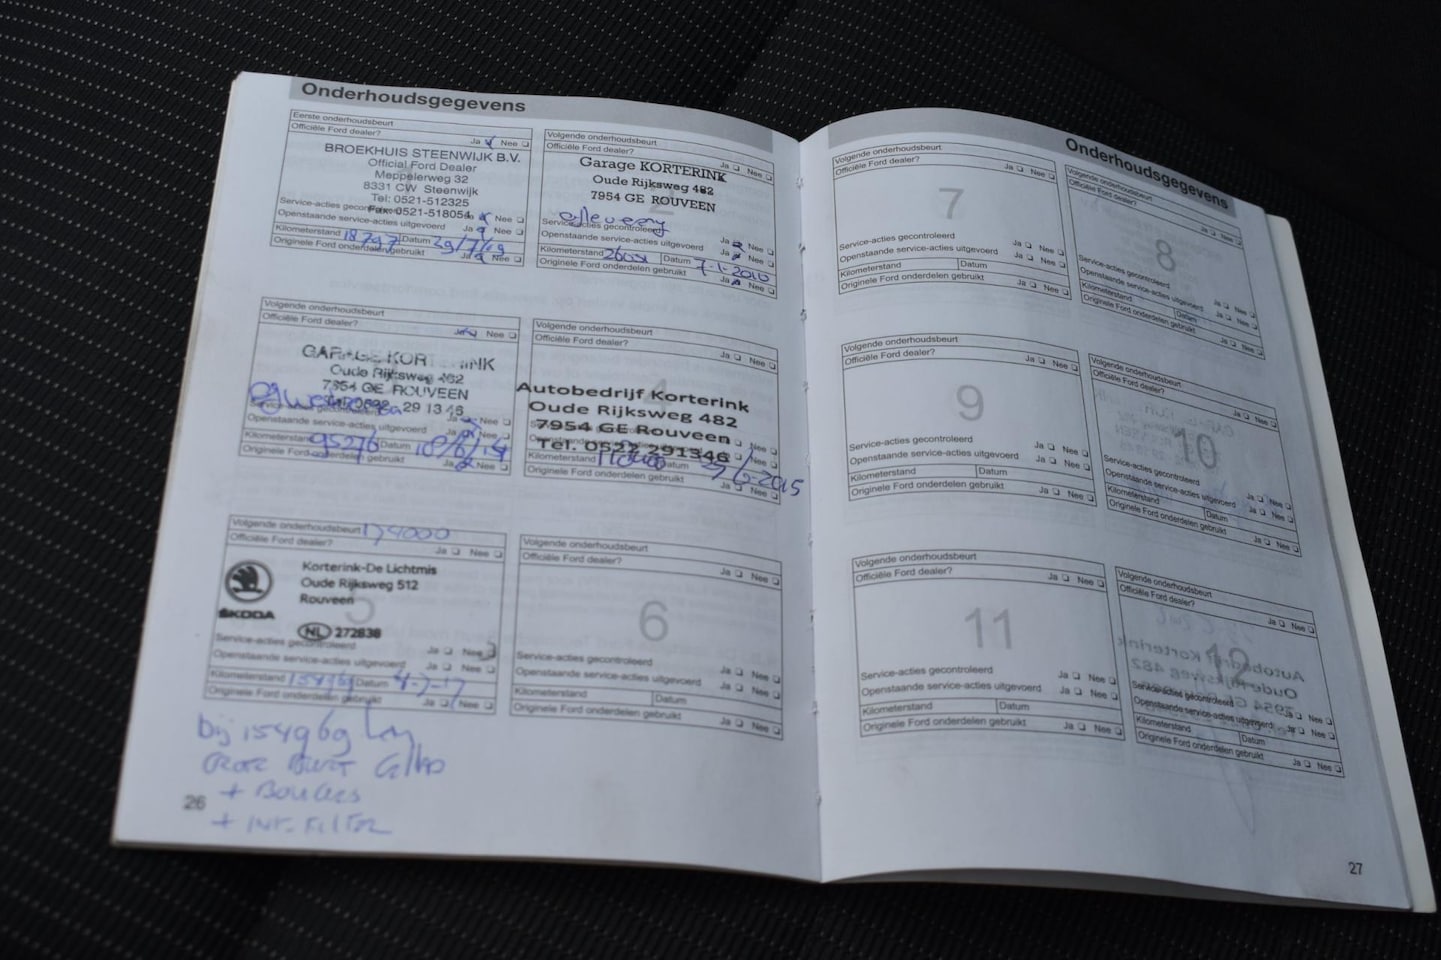 Onderhoudsgegevens
Eerste onderhoudsbeurt
Officiële Ford dealer? Ja Nee
BROEKHUIS STEENWIJK B.V.
Official Ford Dealer
Meppelerweg 32
8331 CW Steenwijk
Tel: 0521-512325
Fax: 0521-518054
Service-acties gecontroleerd Ja Nee
Openstaande service-acties uitgevoerd Ja Nee
Kilometerstand 18797 Datum 29/7/09
Originele Ford onderdelen gebruikt Ja Nee
Volgende onderhoudsbeurt
Officiële Ford dealer? Ja Nee
2
Garage KORTERINK
Oude Rijksweg 482
7954 GE ROUVEEN
Service-acties gecontroleerd Ja Nee
Openstaande service-acties uitgevoerd Ja Nee
Kilometerstand Datum 7-1-2010
Originele Ford onderdelen gebruikt Ja Nee
Volgende onderhoudsbeurt
Officiële Ford dealer? Ja Nee
GARAGE KORTERINK
Oude Rijksweg 482
7954 GE ROUVEEN
29 13 46
Service-acties gecontroleerd Ja Nee
Openstaande service-acties uitgevoerd Ja Nee
Kilometerstand 95276 Datum 10/6/14
Originele Ford onderdelen gebruikt Ja Nee
Volgende onderhoudsbeurt
Officiële Ford dealer? Ja Nee
4
Autobedrijf Korterink
Oude Rijksweg 482
7954 GE Rouveen
Tel. 0522-291346
Kilometerstand Datum -6-2015
Originele Ford onderdelen gebruikt Ja Nee
Volgende onderhoudsbeurt 174000
Officiële Ford dealer? Ja Nee
5
ŠKODA
Korterink-De Lichtmis
Oude Rijksweg 512
Rouveen
NL 272838
Service-acties gecontroleerd Ja Nee
Openstaande service-acties uitgevoerd Ja Nee
Kilometerstand 154969 Datum 4-7-17
Originele Ford onderdelen gebruikt Ja Nee
Volgende onderhoudsbeurt
Officiële Ford dealer? Ja Nee
6
Service-acties gecontroleerd Ja Nee
Openstaande service-acties uitgevoerd Ja Nee
Kilometerstand Datum
Originele Ford onderdelen gebruikt Ja Nee
bij 154969 km
Grote Beurt
+ Bougies
+ Int. Filter
26
Onderhoudsgegevens
Volgende onderhoudsbeurt
Officiële Ford dealer? Ja Nee
7
Service-acties gecontroleerd Ja Nee
Openstaande service-acties uitgevoerd Ja Nee
Kilometerstand Datum
Originele Ford onderdelen gebruikt Ja Nee
Volgende onderhoudsbeurt
Officiële Ford dealer? Ja Nee
8
Service-acties gecontroleerd Ja Nee
Openstaande service-acties uitgevoerd Ja Nee
Kilometerstand Datum
Originele Ford onderdelen gebruikt Ja Nee
Volgende onderhoudsbeurt
Officiële Ford dealer? Ja Nee
9
Service-acties gecontroleerd Ja Nee
Openstaande service-acties uitgevoerd Ja Nee
Kilometerstand Datum
Originele Ford onderdelen gebruikt Ja Nee
Volgende onderhoudsbeurt
Officiële Ford dealer? Ja Nee
10
Service-acties gecontroleerd Ja Nee
Openstaande service-acties uitgevoerd Ja Nee
Kilometerstand Datum
Originele Ford onderdelen gebruikt Ja Nee
Volgende onderhoudsbeurt
Officiële Ford dealer? Ja Nee
11
Service-acties gecontroleerd Ja Nee
Openstaande service-acties uitgevoerd Ja Nee
Kilometerstand Datum
Originele Ford onderdelen gebruikt Ja Nee
Volgende onderhoudsbeurt
Officiële Ford dealer? Ja Nee
12
Service-acties gecontroleerd Ja Nee
Openstaande service-acties uitgevoerd Ja Nee
Kilometerstand Datum
Originele Ford onderdelen gebruikt Ja Nee
27